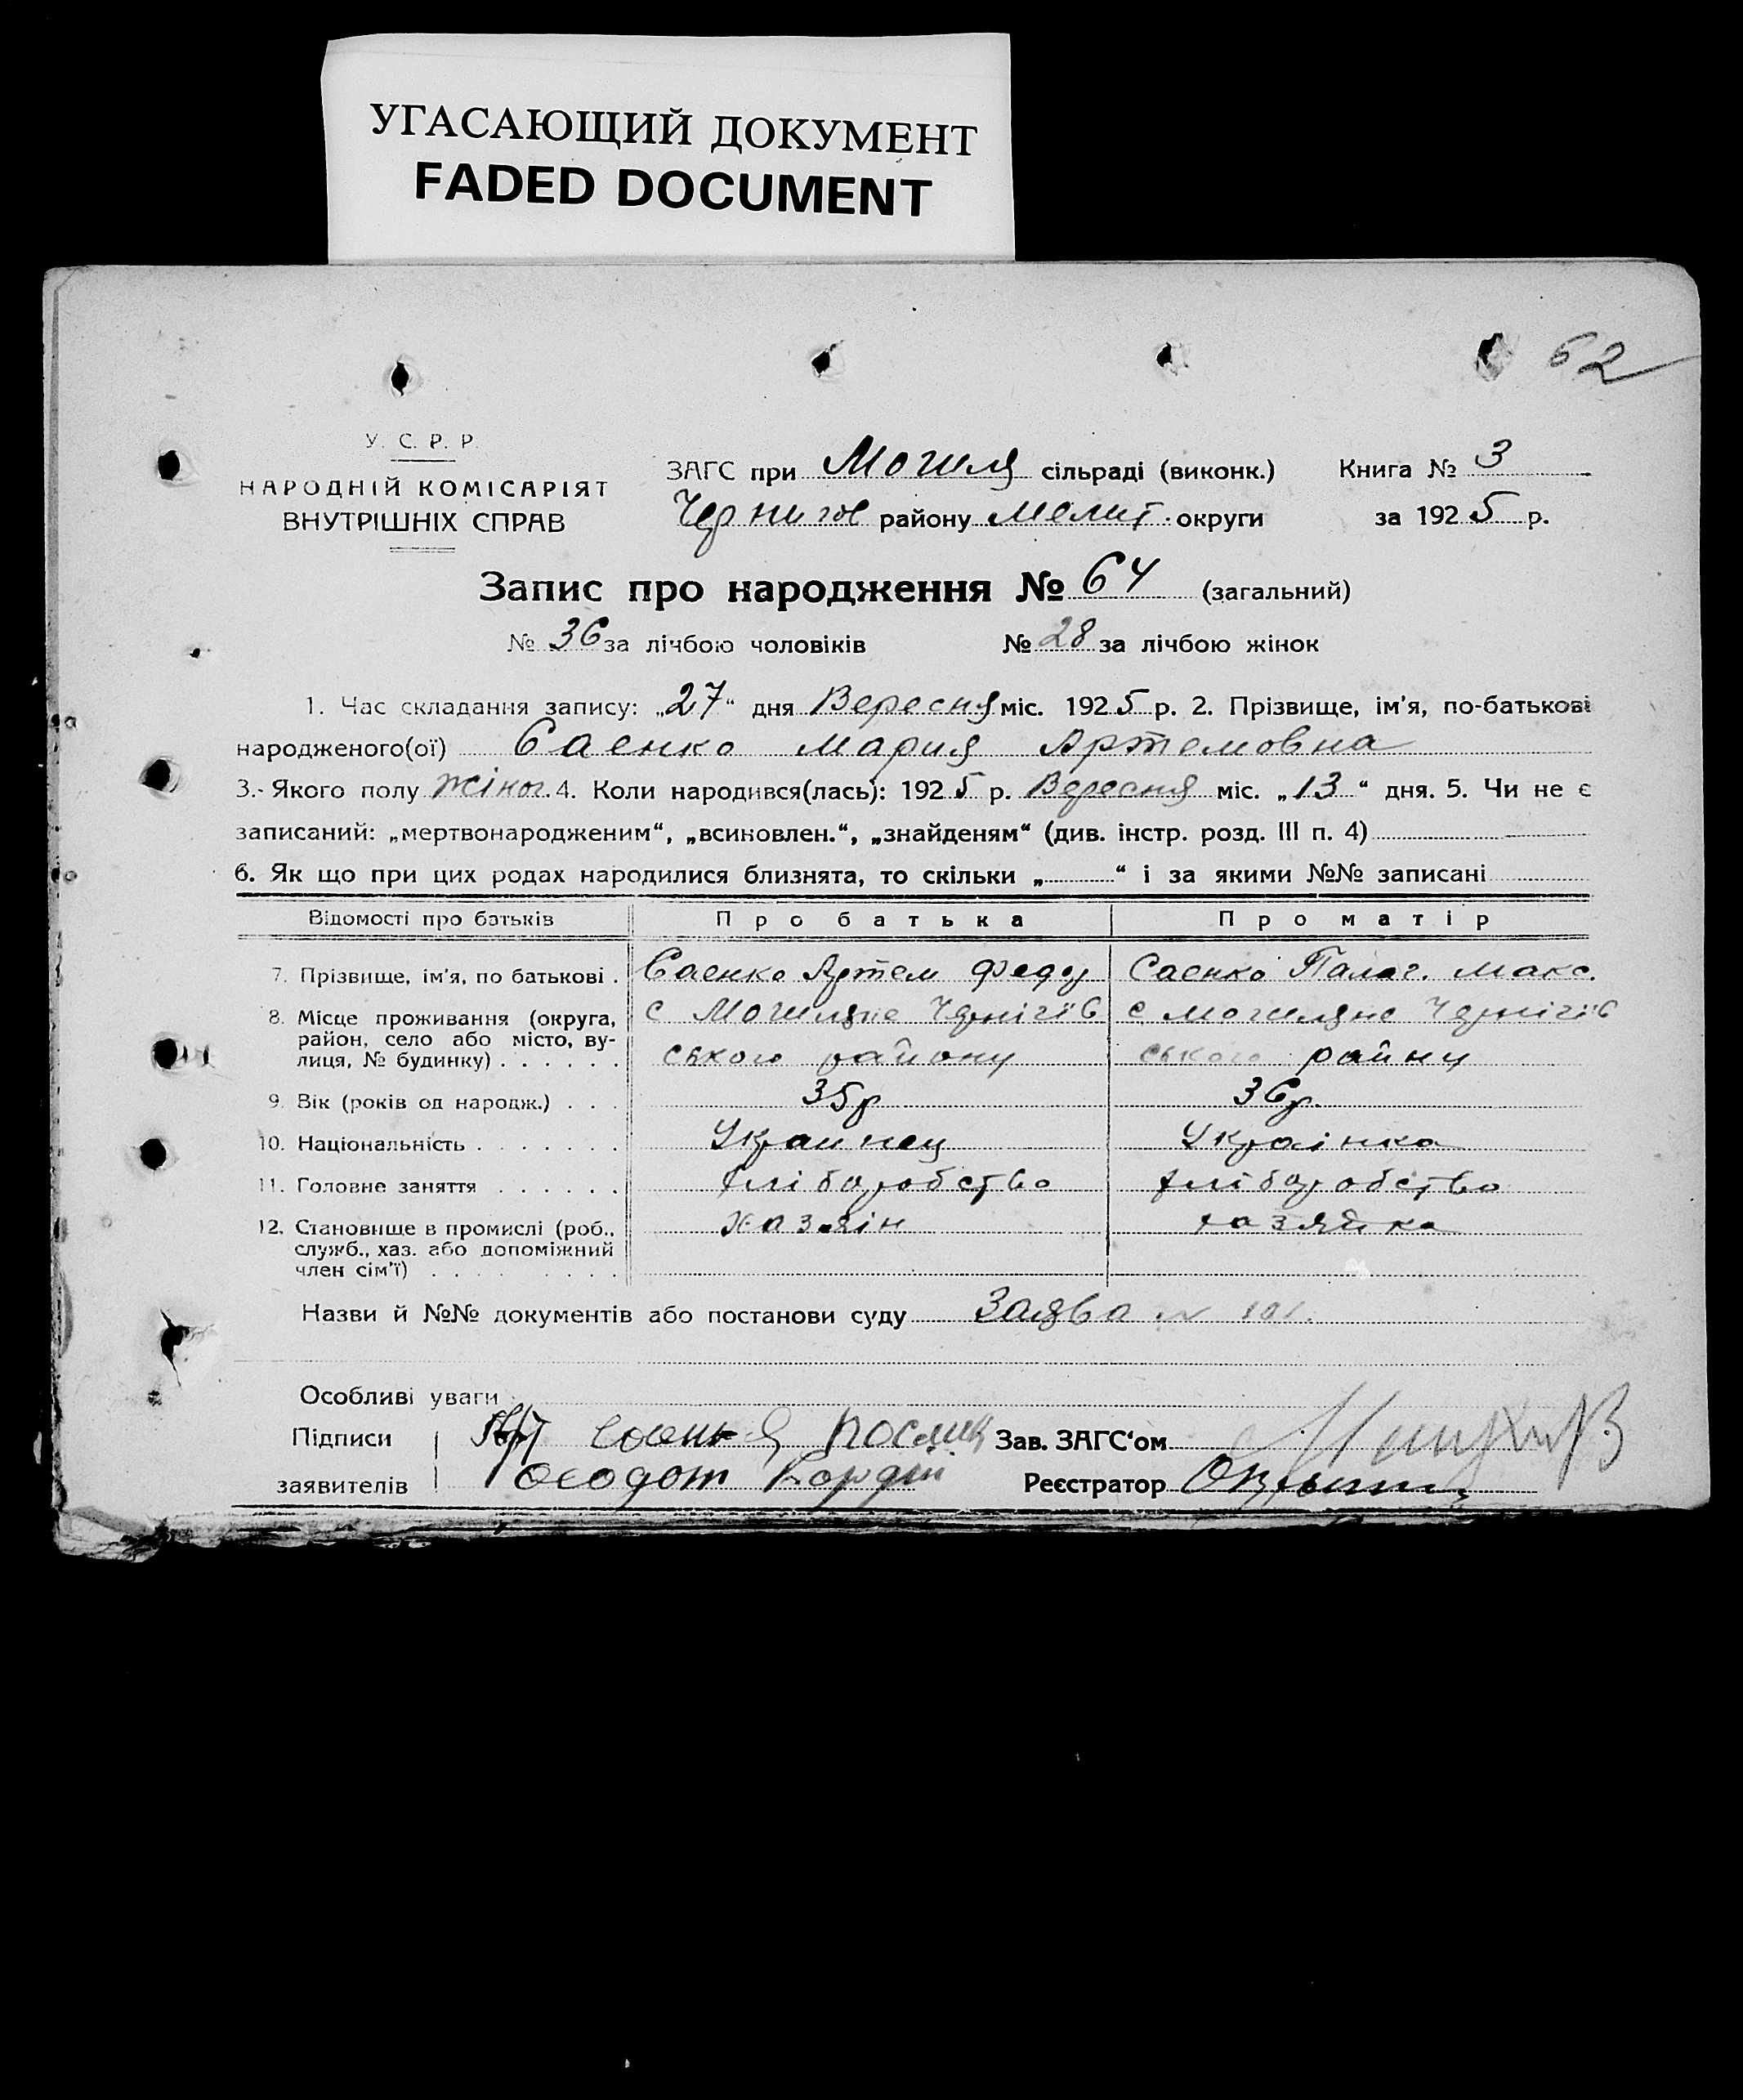 УГАСАЮЩИЙ ДОКУМЕНТ
FADED DOCUMENT
62
У. С. Р. Р.
НАРОДНІЙ КОМІСАРІЯТ
ВНУТРІШНІХ СПРАВ
ЗАГС при Могиля сільраді (виконк.) Книга № 3
Чернигов району Мелит. округи за 1925 р.
Запис про народження № 64 (загальний)
№ 36 за лічбою чоловіків № 28 за лічбою жінок
1. Час складання запису: „27“ дня Вересня міс. 1925 р. 2. Прізвище, ім'я, по-батькові
народженого(ої) Саенко Мария Артемовна
3. Якого полу жіноч. 4. Коли народився(лась): 1925 р. Вересня міс. „13“ дня. 5. Чи не є
записаний: „мертвонародженим“, „всиновлен.“, „знайденям“ (див. інстр. розд. III п. 4)
6. Як що при цих родах народилися близнята, то скільки „ “ і за якими №№ записані
Відомості про батьків Про батька Про матір
7. Прізвище, ім'я, по батькові . Саенко Артем Федор Саенко Палаг. Макс.
8. Місце проживання (округа, район, село або місто, вулиця, № будинку) . . . . . . с Могиляне Чернігів с Могиляне Чернігів
ського району ського райну
9. Вік (років од народж.) . . . 35р 36р.
10. Національність . . . . . . . Украинец Украінка
11. Головне заняття . . . . . . хліборобство хліборобство
12. Становище в промислі (роб., служб., хаз. або допоміжний член сім'ї) . . . . . . . . . хазяін хазяйка
Назви й №№ документів або постанови суду Заява № 101.
Особливі уваги
Підписи Зав. ЗАГС'ом
заявителів Реєстратор